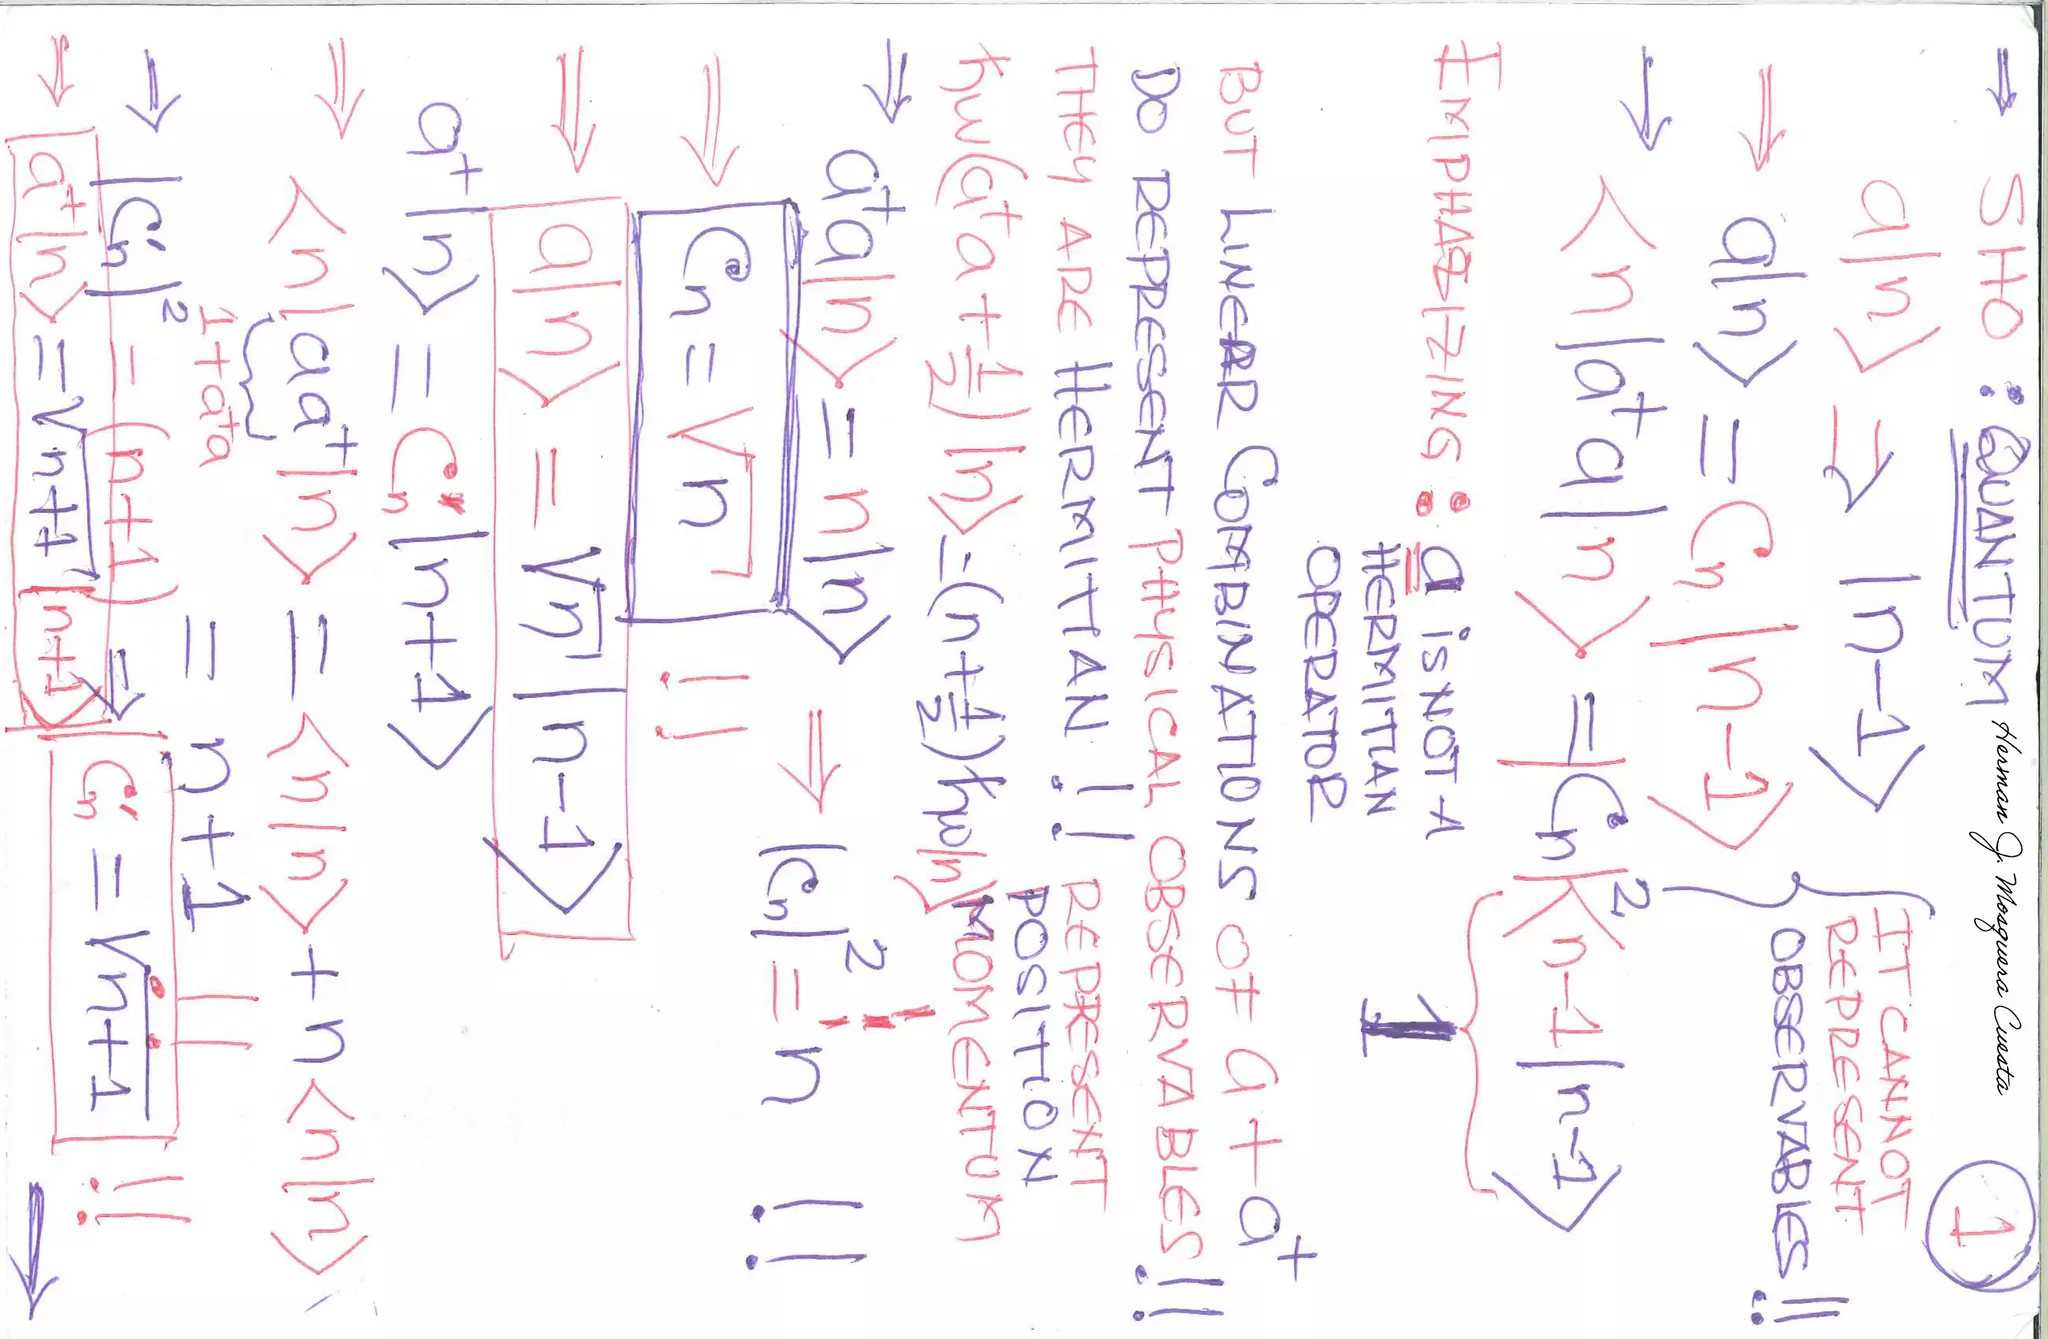 ⇒ SHO : QUANTUM Herman J. Mosquera Cuesta 1
a|n> ⇒ |n-1>
⇒ a|n> = Cn |n-1>
IT CANNOT
REPRESENT
OBSERVABLES !!
⇒ <n|a⁺a|n> = |Cn|² <n-1|n-1>
1
EMPHASIZING : a is NOT A
HERMITIAN
OPERATOR
BUT LINEAR COMBINATIONS OF a + a⁺
DO REPRESENT PHYSICAL OBSERVABLES !!
THEY ARE HERMITIAN !! REPRESENT
POSITION
MOMENTUM
ħω(a⁺a + 1/2)|n> = (n + 1/2)ħω|n>
⇒ a⁺a|n> = n|n> ⇒ |Cn|² = n !!
⇒ Cn = √n !!
⇒ a|n> = √n |n-1>
a⁺|n> = Cn' |n+1>
⇒ <n|aa⁺|n> = <n|n> + n<n|n>
1+a⁺a
= n+1
⇒ |Cn'|² = (n+1) ⇒ Cn' = √n+1 !!
⇒ a⁺|n> = √n+1 |n+1> ⇒